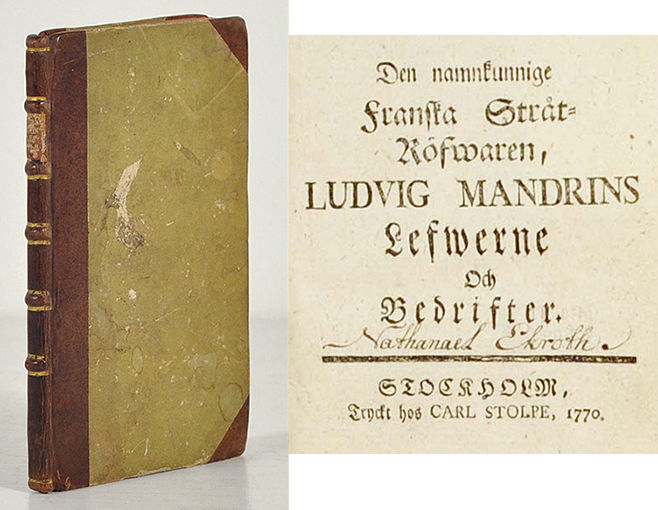 Den namnkunnige
Franska Stråt-
Röfwaren,
LUDVIG MANDRINS
Lefwerne
Och
Bedrifter.
Nathanael Ekroth.
STOCKHOLM,
Tryckt hos CARL STOLPE, 1770.